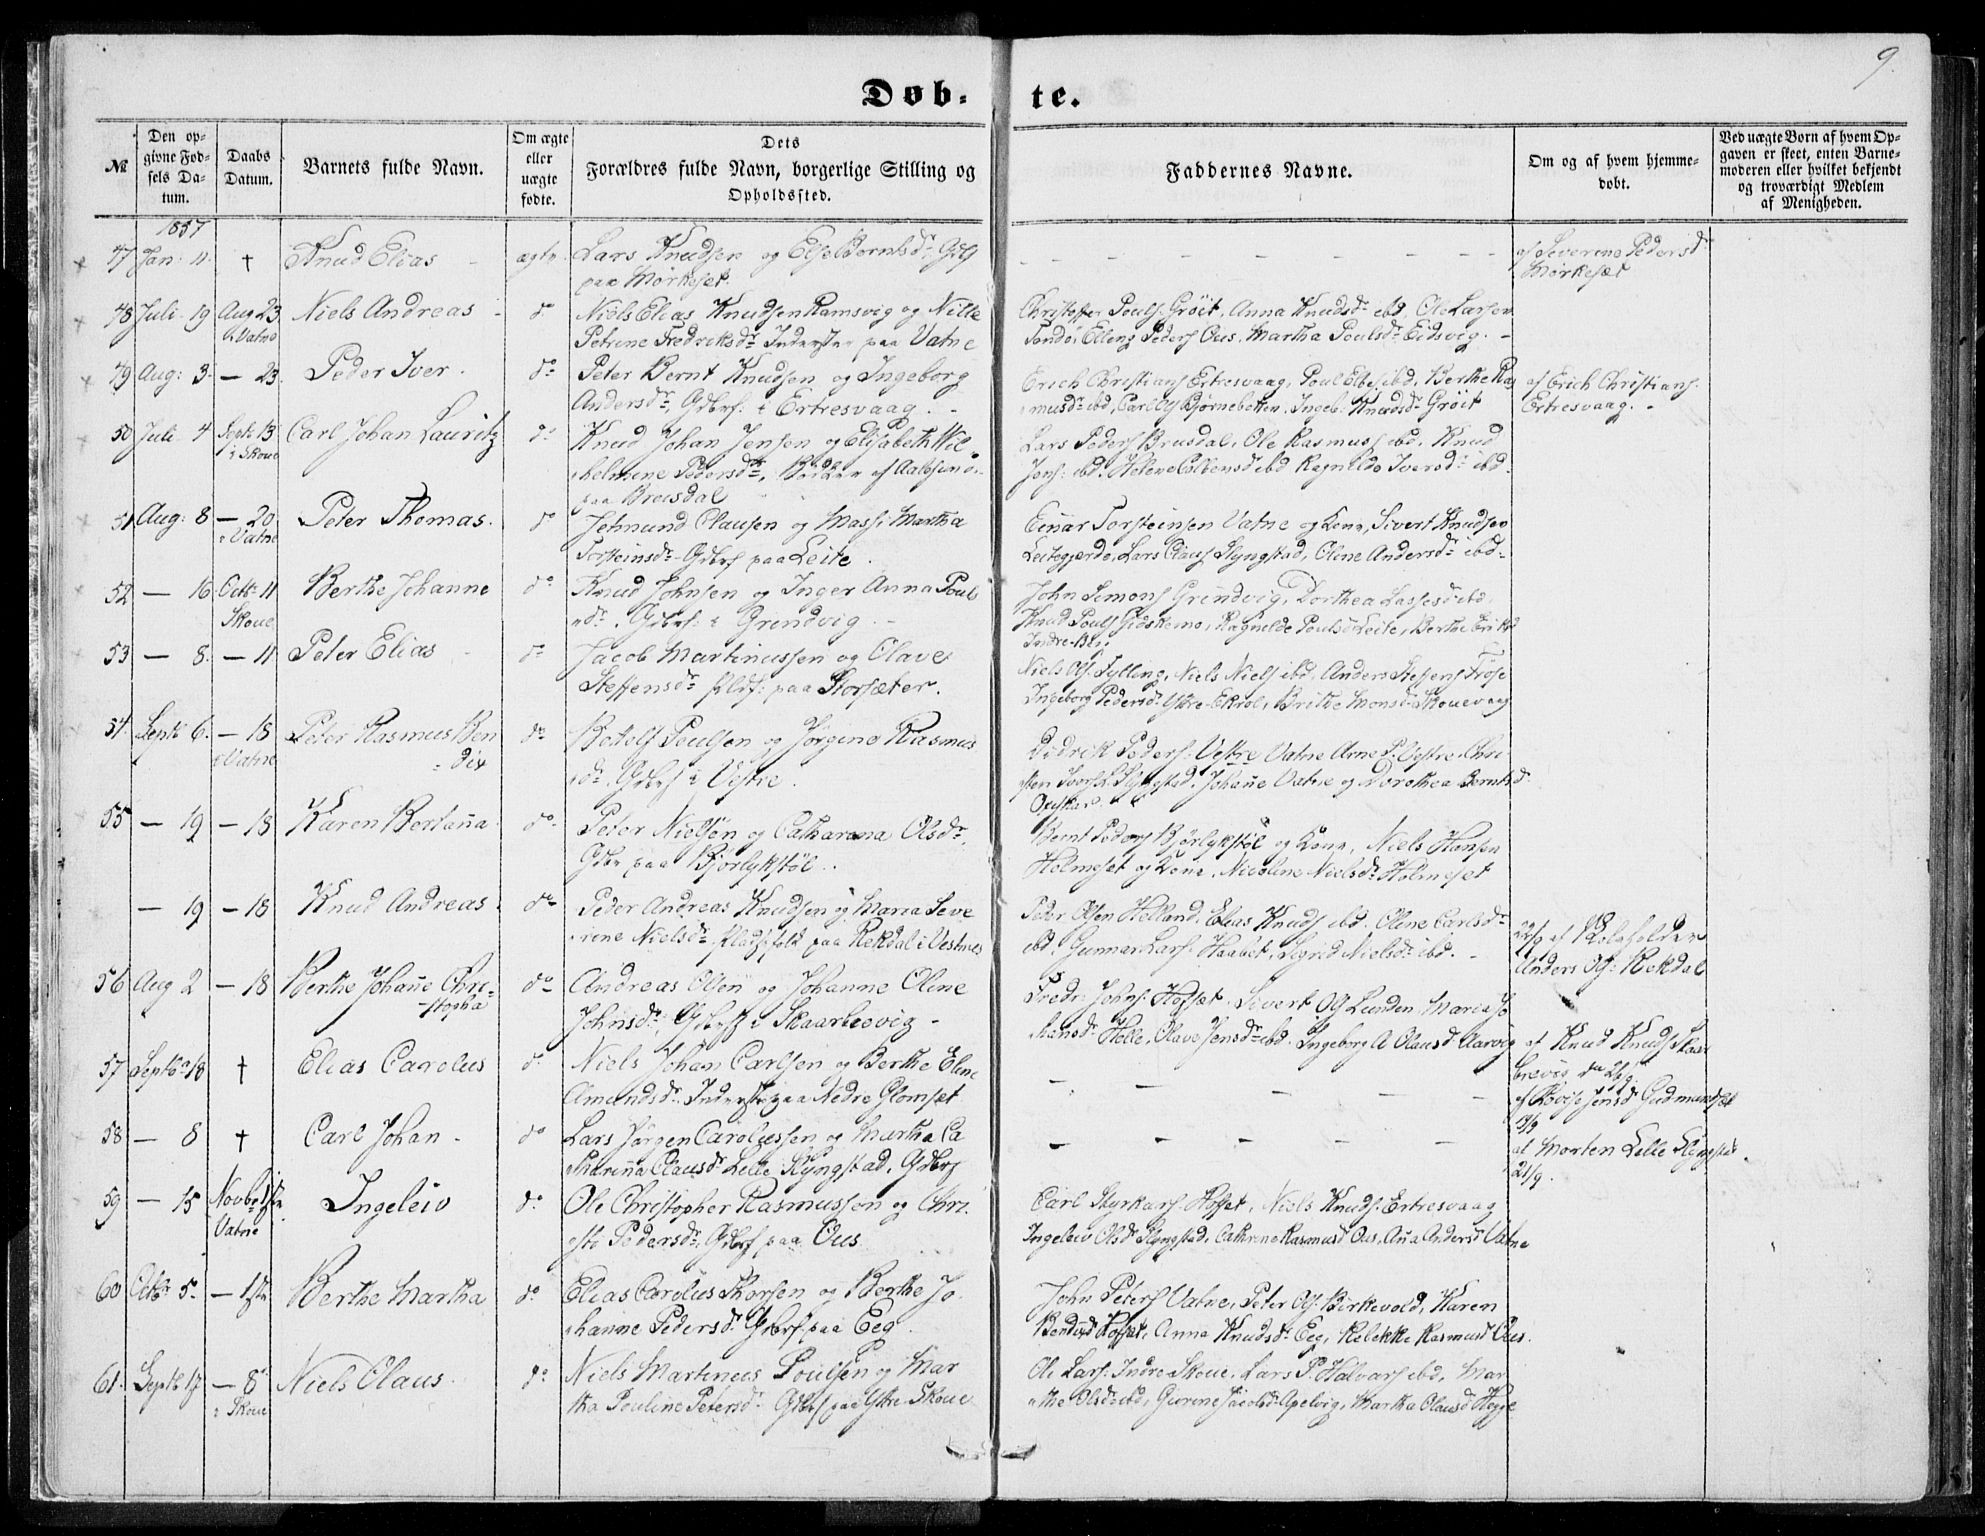 9.
Døb- te.
№
Den opgivne Fødsels Datum.
Daabs Datum.
Barnets fulde Navn.
Om ægte eller uægte fødte.
Dets Forældres fulde Navn, borgerlige Stilling og Opholdssted.
Faddernes Navne.
Om og af hvem hjemmedøbt.
Ved uægte Børn af hvem Opgaven er skeet, enten Barnemoderen eller hvilket bekjendt og troværdigt Medlem af Menigheden.
1857
47 Jan: 4. † Knud Elias - ægte Lars Knudsen og Else Berntsdr: Gdf
paa Mørkeset.
- - - - - - - -
af Severine Pedersd
Mørkeset
48 Juli 19 Aug 23 Niels Andreas - do Niels Elias Knudsen Ramsvig og Nille
i Vatne Petrine Fredriksdr Inderster paa Vatne
Christoffer Pouls Grøit, Anna Knudsdr ibd, Ole Larsen
Elling Peders Ous, Martha Poulsdr Eidsvig. -
49 Aug: 3. - 23. Peder Iver. do Peter Bernt Knudsen og Ingeborg
Andersdr, Gdbrf: i Ertresvaag. -
Erich Christians Ertresvaag, Poul ibd, Berthe Ras
musdr ibd, Carl Ols Bjørnebetten, Ingeb. Knudsdr Grøit
af Erich Christians:
Ertresvaag. -
50 Juli 4 Septb 13 Carl Johan Lauritz do Knud Johan Jensen og Elisabeth Wil-
i Skoue helmine Pedersdr, af Aalesund
paa Brusdal
Lars Peders Brusdal, Ole Rasmuss ibd, Knud
Jens: ibd. Helene ibd Ragnilde Iversdr ibd.
51 Aug: 8 - 20 Peter Thomas. do Jetmund Clausen og Massi Martha
i Vatne Torsteinsdr Gdbrf paa Leite.
Einar Torsteinsen Vatne og Kone, Sivert Knudsen
Leitegjerde, Lars Claus Slyngstad, Oline Andersdr ibd.
52 - 16 Octb 11 Berthe Johanne do Knud Johnsen og Inger Anna Pouls
Skoue dr. Gdbrf: i Grendvig. -
John Simons Grendvig, Dorthea Lassesd ibd,
Knud Pouls Gidskemo, Ragnilde Poulsdr Leite, Berthe Eriksd
Indre-
53 - 8. - 11 Peter Elias - do Jacob Martinussen og Olave
Steffensdr paa Storsæter.
Niels Ols: Sylling, Niels Niels ibd, Anders Steffens
Ingeborg Pedersdr Ystre-Ekrol, Brithe Monsdr Skouevaag
54. Septb 6. - 18 Peter Rasmus Ben
i Vatne dix
do Botolf Poulsen og Jørgine Rasmus
dr. Gdbrf i Vestre.
Didrik Peders: Vestre Vatne Arne P. Vestre, Chri
sten Ivers L. Slyngstad, Johanne Vatne og Dorothea Berntsd
55 - 19 - 18 Karen Bertanna do Peter Nielsen og Catharina Olsdr,
Gdbr paa Bjørlykstøl.
Bernt Peders Bjørlykstøl og Kone, Niels Hansen
Holmeset og Kone, Nicoline Nielsdr Holmeset
- 19 - 18 Knud Andreas. do Peder Andreas Knudsen og Maria Seve
rine Nielsdr Pladsfolk paa Rekdal i Vestnes
Peder Olsen Helland, Elias Knuds ibd. Oline Carlsdr
ibd. Gunnar Lars: Haabet, Sigrid Nielsdr ibd. -
22/9 af Skoleholder
Anders Ols: Rekdal
56 Aug 2 - 18 Berthe Johanne Chri-
stopha
do Andreas Olsen og Johanne Oline
Johnsdr. Gdbrf i Skaarbrevig -
Fredr: Johns: Hofset, Sivert Ols Lunden, Maria Jo
Helle, Olave Jensdr ibd. Ingeborg A Olausdr Aarvig
af Knud Knuds Skaar
brevig d 26/9
57 Septb 18 † Elias Carolus do Niels Johan Carlsen og Berthe Eline
Amundsdr Inderster paa Nedre Glomset
- - - - -
af Jensd Gudmundset
19/9
58 - 8 † Carl Johan - do Lars Jørgen Carolussen og Martha Ca
tharina Clausdr Lille Slyngstad, Gdbrf
- - - - -
af Morten Lille Slyngstad.
21/9.
59 - 15 Novbr 1ste Ingeleiv do Ole Christopher Rasmussen og Chri.
Vatne Pedersdr, Gdbrf paa Ous
Carl Styrkars: Hofset, Niels Knuds: Ertresvaag
Ingeleiv Olsd Slyngstad, Cathrine Rasmusd Ous, Anna Andersd Vatne
60 Octbr 5. - 1ste Berthe Martha do Elias Carolus Thorsen og Berthe Jo-
hanne Pedersdr. Gdbrf paa Eeg.
John Peters Vatne, Peter Ols: Birkevold, Karen
Hofset, Anna Knudsdr Eeg, Rebekke Rasmusd Ous.
61. Septb 17 - 8de Niels Olaus. do Niels Martinus Poulsen og Mar
i Skoue tha Pouline Petersdr Gdbrf paa Ystre Skoue
Ole Lars: Indre Skoue, Lars P. Halvars ibd, Mar
the Olsdr ibd, Gurine Jacobsdr Apelvig, Martha Olausd Hegge